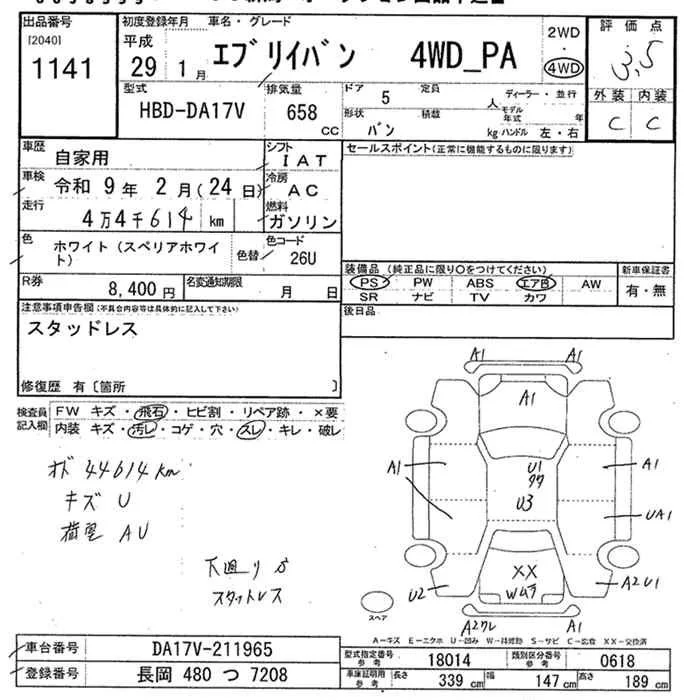 出品番号
[2040]
1141
初度登録年月
車名・グレード
平成
29年
1月
エブリイバン 4WD_PA
2WD
・
4WD
評価点
3.5
外装 内装
C C
型式
HBD-DA17V
排気量
658
CC
ドア 5
定員
人
ディーラー・並行
モデル年式
年
形状
バン
積載
kg
ハンドル 左・右
車歴
自家用
シフト
IAT
車検
令和 9年 2月(24日)
冷房
AC
走行
4万4千614 km
燃料
ガソリン
セールスポイント(正常に機能するものに限ります)
色
ホワイト(スペリアホワイト)
色替
色コード
26U
R券
8,400円
名変通知期限
月 日
装備品 (純正品に限り○をつけてください)
新車保証書
PS PW ABS エアB AW
有・無
SR ナビ TV カワ
後日品
注意事項申告欄(不具合内容等は具体的に記入して下さい)
スタッドレス
修復歴 有〔箇所 〕
検査員記入欄
FW キズ・飛石・ヒビ割・リペア跡・×要
内装 キズ・汚レ・コゲ・穴・スレ・キレ・破レ
オド 44614km
キズ U
荷室 AU
下廻りサ
スタットレス
A1 A1
A1
A1
U1
A1
U3
UA1
XX
Wムラ
U2
A2U1
スペア
A2ワレ
A1
A-キズ E-エクボ U-凹み W-補修跡 S-サビ C-腐食 XX-交換済
車台番号
DA17V-211965
登録番号
長岡 480 つ 7208
型式指定番号
参考
18014
類別区分番号
参考
0618
車庫証明用
参考
長さ 339 cm
幅 147 cm
高さ 189 cm